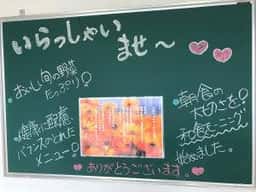 いらっしゃい
ませ～
おいしい旬の野菜
たっぷり!
健康に配慮
バランスのとれた
メニュー!
朝食の
大切さを!
和食モーニング
始めました。
ありがとうございます